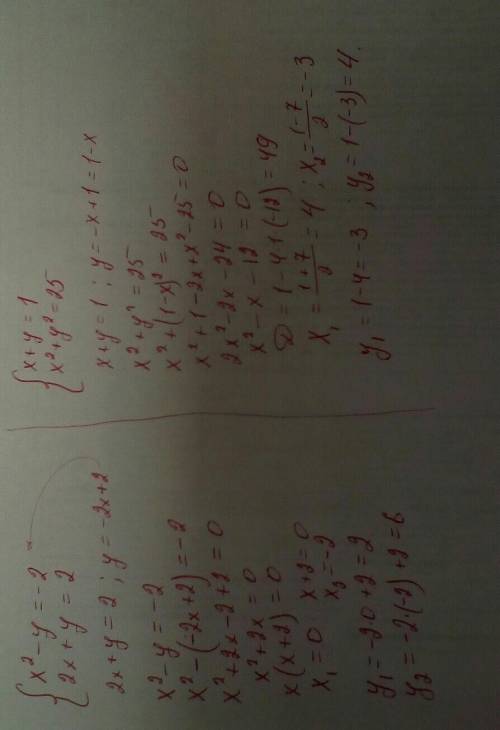 { x² - y = -2
2x + y = 2
2x + y = 2 ; y = -2x+2
x² - y = -2
x² - (-2x+2) = -2
x² + 2x - 2 + 2 = 0
x² + 2x = 0
x(x+2) = 0
x₁ = 0 x+2 = 0
x₂ = -2
y₁ = -2·0 + 2 = 2
y₂ = -2·(-2) + 2 = 6
{ x + y = 1
x² + y² = 25
x + y = 1 ; y = -x + 1 = 1-x
x² + y² = 25
x² + (1-x)² = 25
x² + 1 - 2x + x² - 25 = 0
2x² - 2x - 24 = 0
x² - x - 12 = 0
D = 1 - 4·1·(-12) = 49
x₁ = (1+7)/2 = 4 ; x₂ = (1-7)/2 = -3
y₁ = 1 - 4 = -3 ; y₂ = 1 - (-3) = 4.